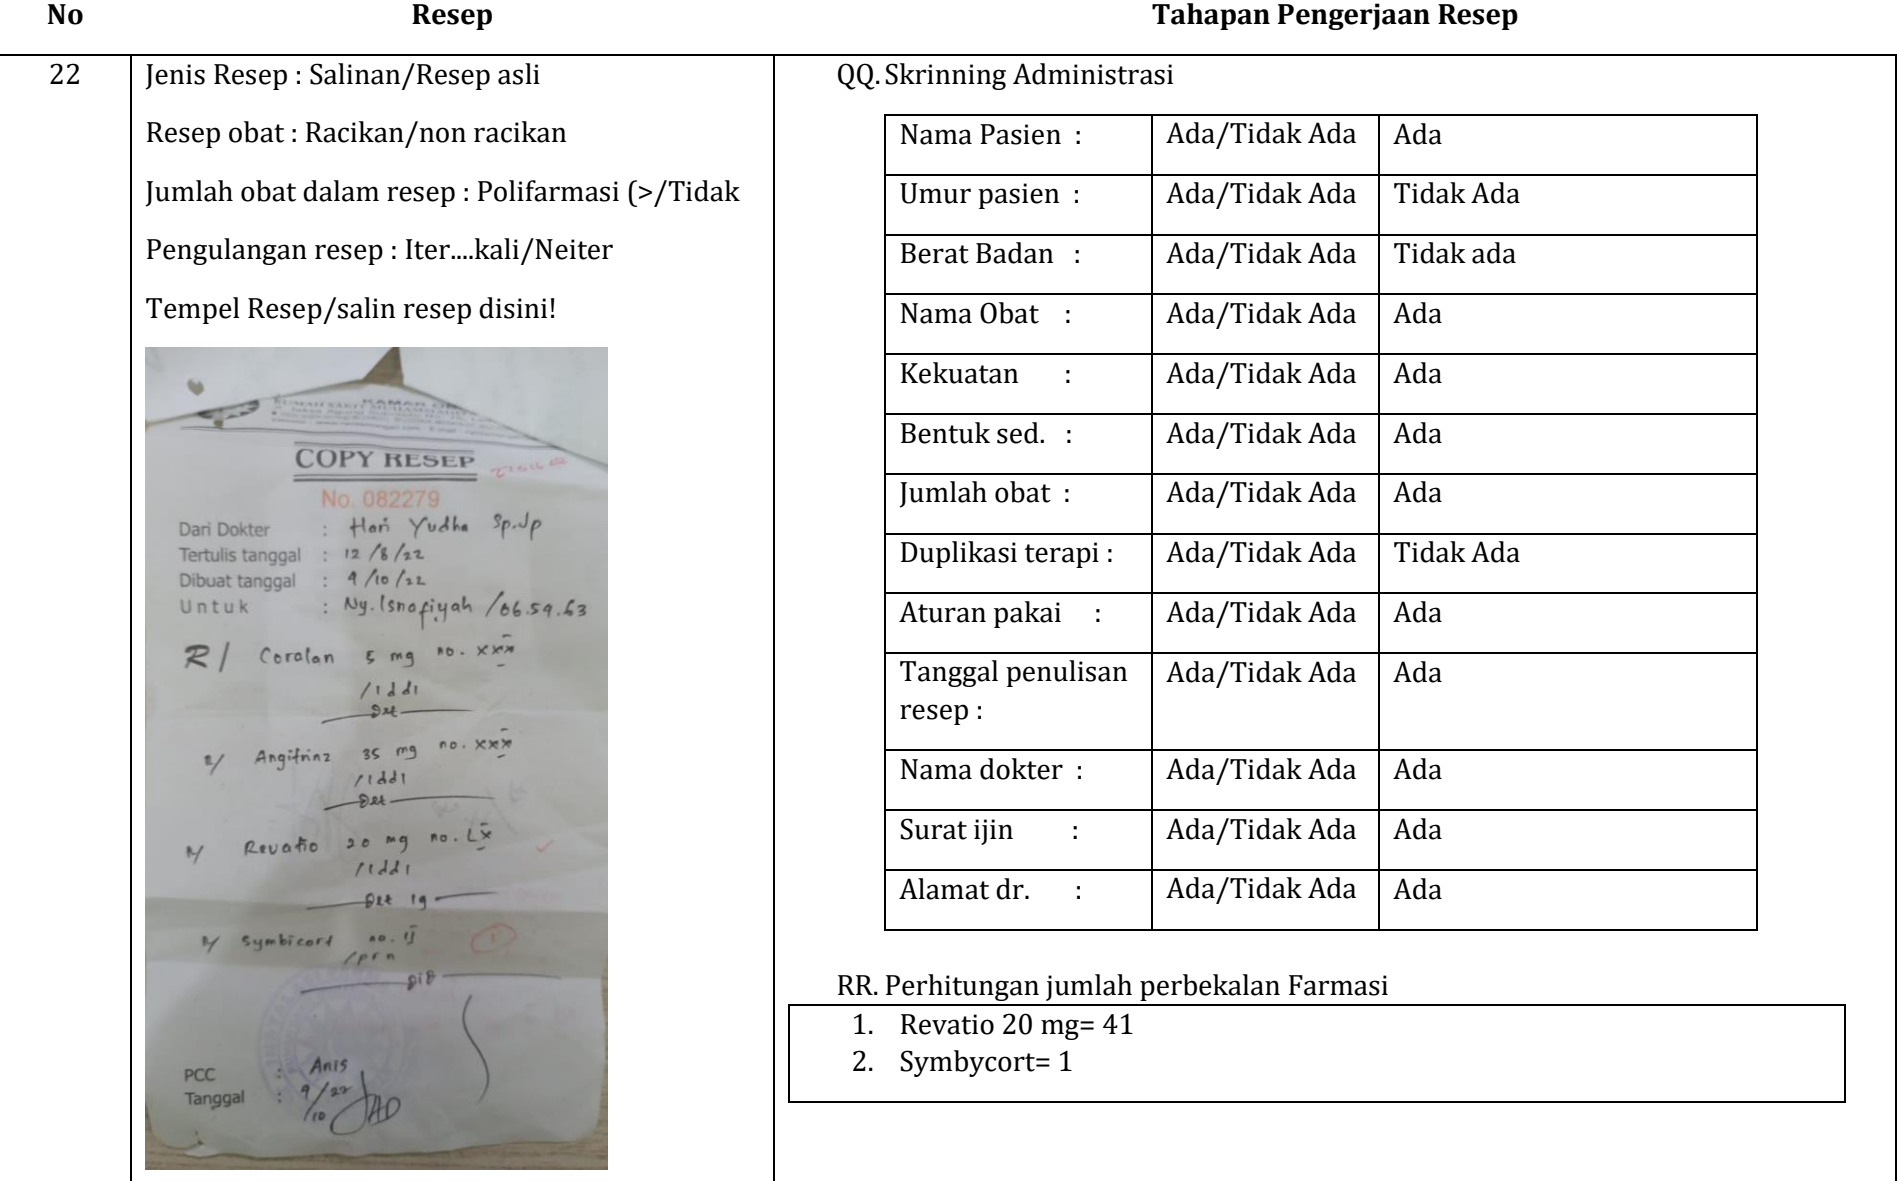 No Resep Tahapan Pengerjaan Resep
22
Jenis Resep : Salinan/Resep asli
Resep obat : Racikan/non racikan
Jumlah obat dalam resep : Polifarmasi (>/Tidak
Pengulangan resep : Iter....kali/Neiter
Tempel Resep/salin resep disini!
COPY RESEP
No. 082279
Dari Dokter : Hari Yudha Sp.Jp
Tertulis tanggal : 12/8/22
Dibuat tanggal : 9/10/22
Untuk : Ny. Isnafiyah /06.59.63
R/ Coralan 5 mg no. xxx
/1dd1
det
R/ Angitrinz 35 mg no. xxx
/1dd1
det
R/ Revatio 20 mg no. Lx
/1dd1
det 19
R/ Symbicort no. ij
/prn
1
PCC : Anis
Tanggal : 9/10/22
QQ. Skrinning Administrasi
Nama Pasien : Ada/Tidak Ada Ada
Umur pasien : Ada/Tidak Ada Tidak Ada
Berat Badan : Ada/Tidak Ada Tidak ada
Nama Obat : Ada/Tidak Ada Ada
Kekuatan : Ada/Tidak Ada Ada
Bentuk sed. : Ada/Tidak Ada Ada
Jumlah obat : Ada/Tidak Ada Ada
Duplikasi terapi : Ada/Tidak Ada Tidak Ada
Aturan pakai : Ada/Tidak Ada Ada
Tanggal penulisan Ada/Tidak Ada Ada
resep :
Nama dokter : Ada/Tidak Ada Ada
Surat ijin : Ada/Tidak Ada Ada
Alamat dr. : Ada/Tidak Ada Ada
RR. Perhitungan jumlah perbekalan Farmasi
1. Revatio 20 mg= 41
2. Symbycort= 1